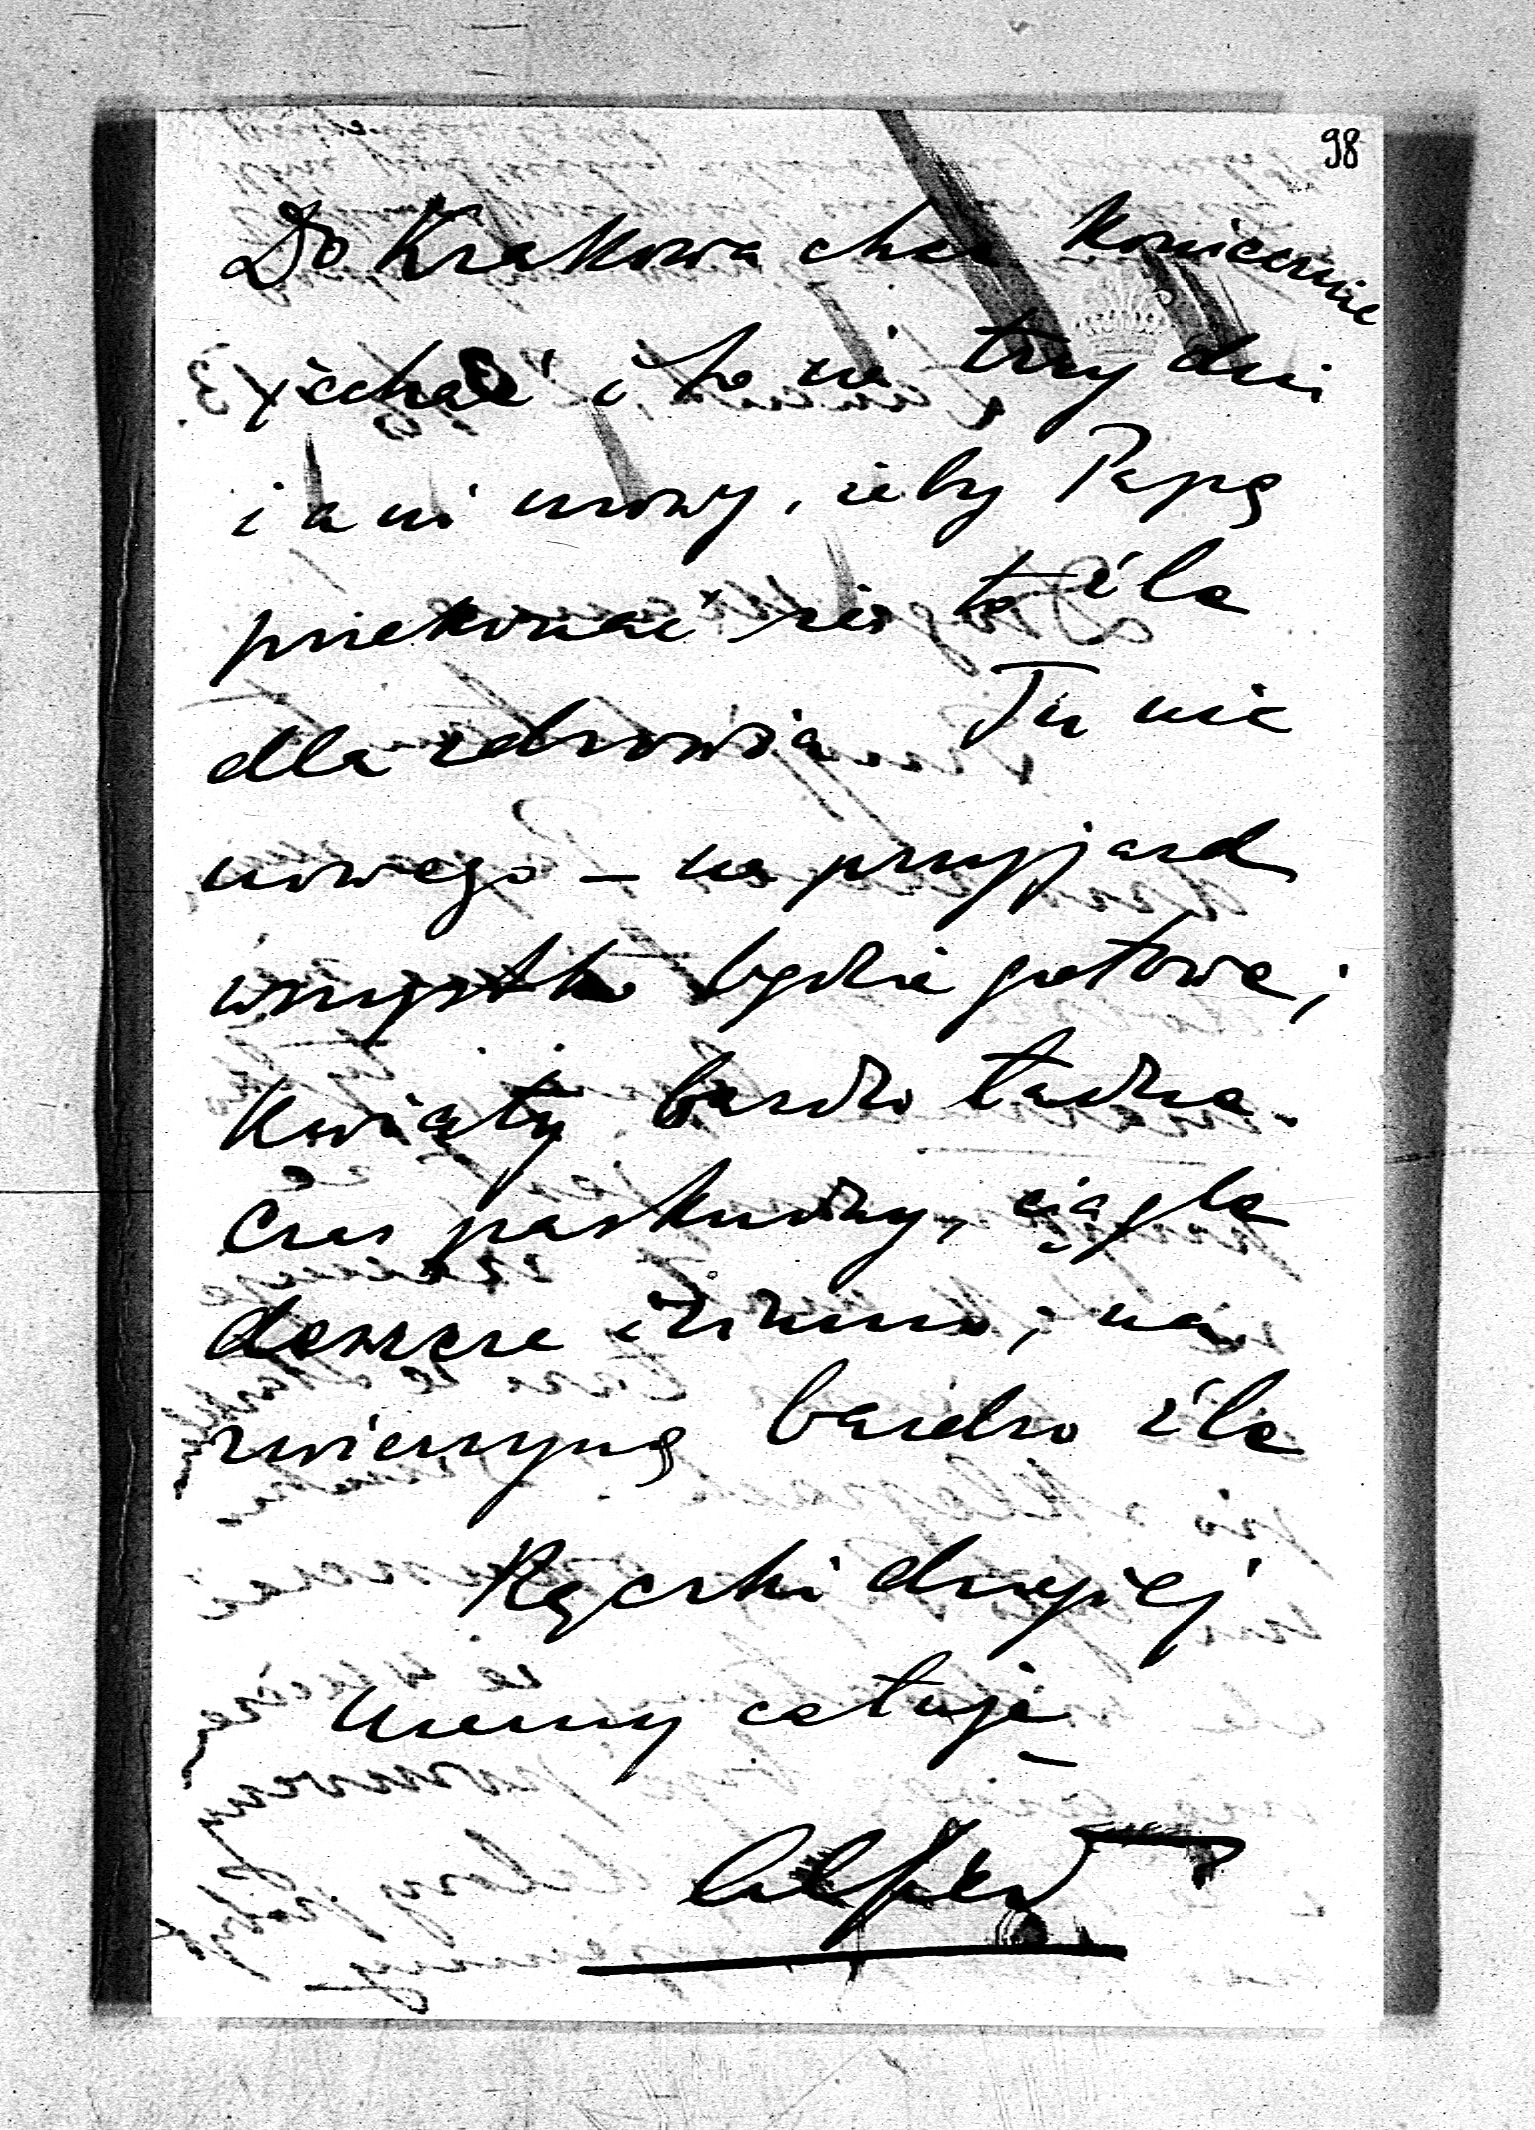 98
Do Krakowa chce koniecznie
jechać i to na trzy dni
i ani mowy, żeby Papę
przekonać że to źle
dla zdrowia Tu nic
nowego – na przyjazd
wszystko będzie gotowe;
Kwiaty bardzo ładne.
Czas paskudny, ciągle
deszcze i zimno; na
zwierzynę bardzo źle
Rączki drogiej
Mamy całuję
Alfred